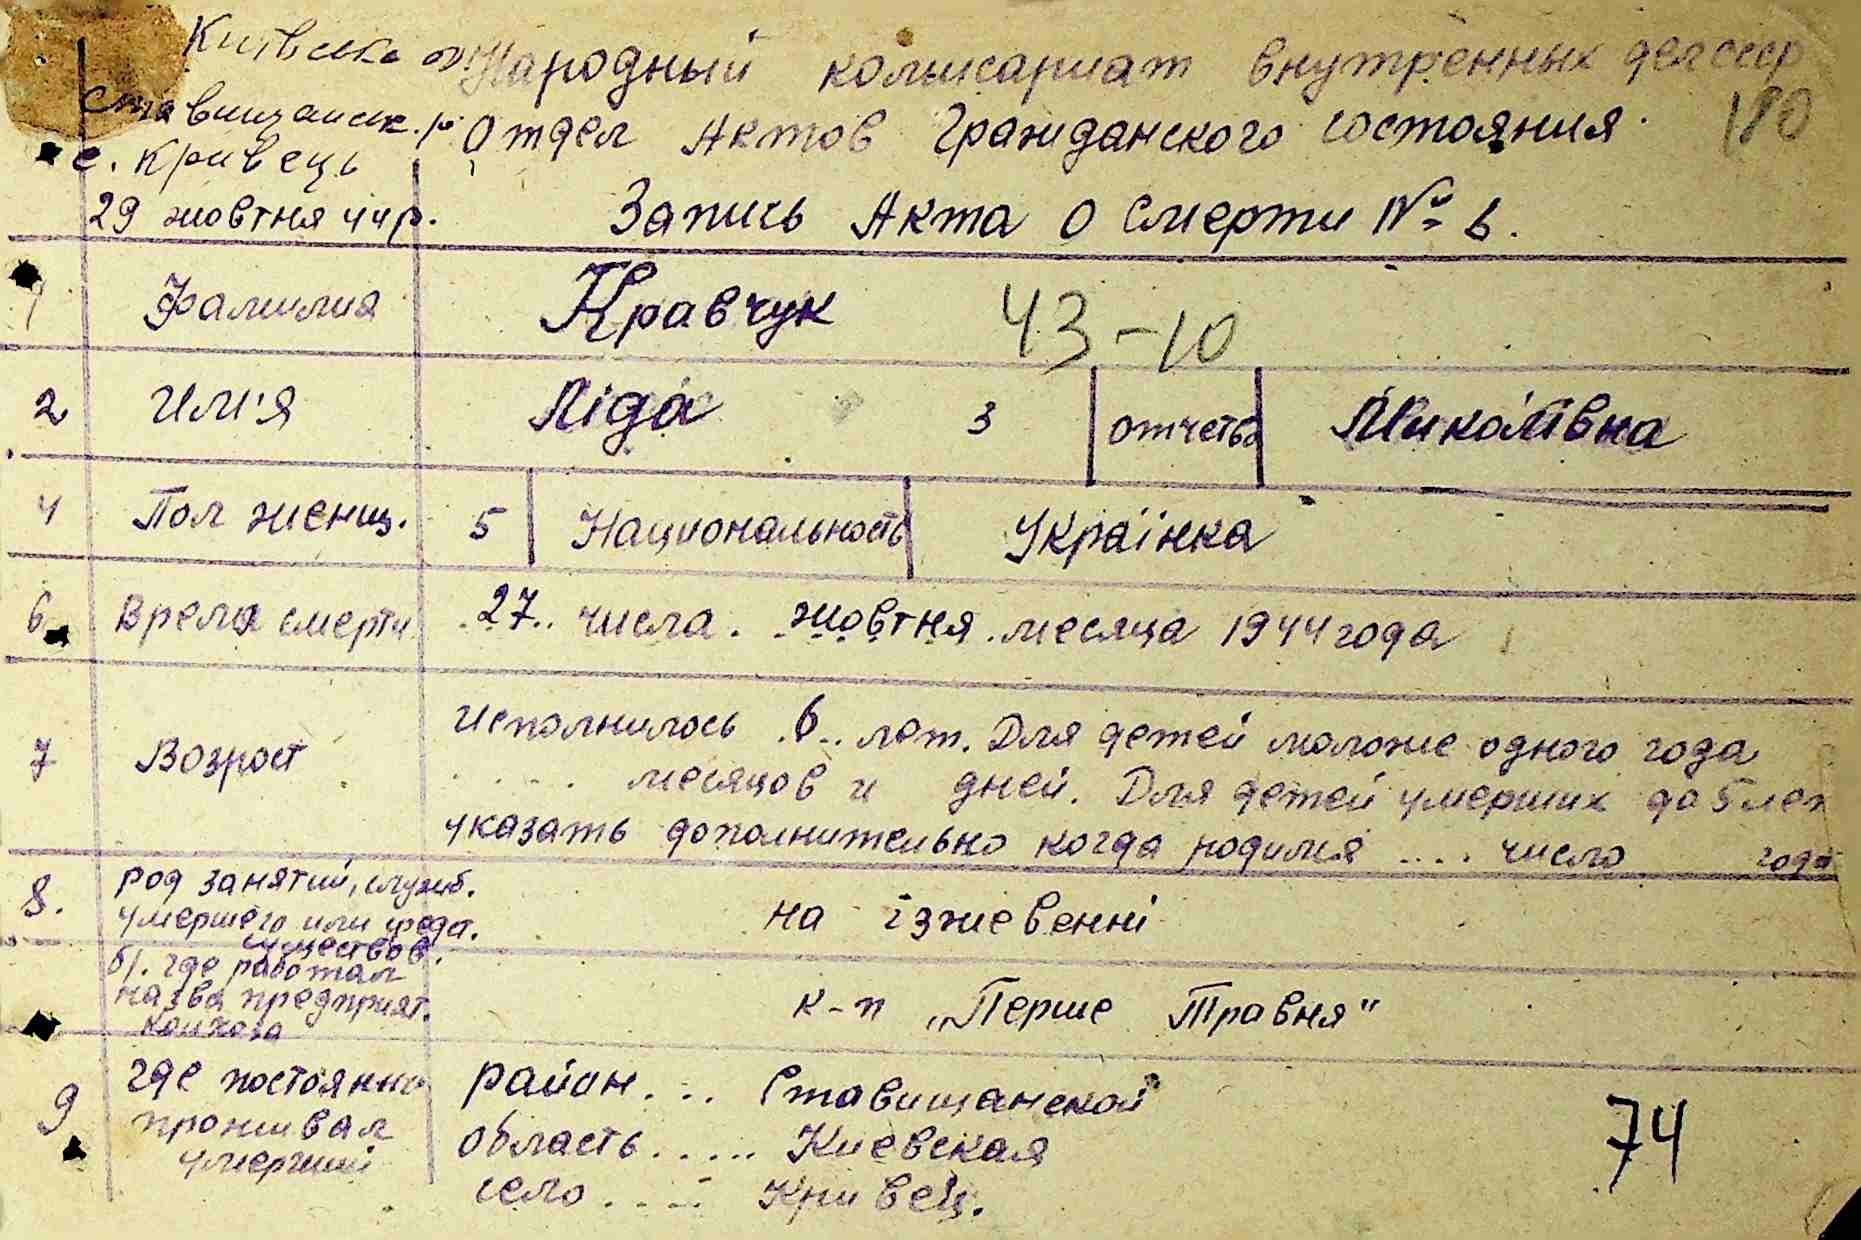 Київська об.
Ставищанськ. р.
с. Кривець
29 жовтня 44 р.
Народный комисариат внутренных дел ссср
Отдел Актов Гражданского состояния.
180
Запись Акта о смерти № 6.
1 Фамилия Кравчук 43-10
2 Им'я Ліда 3 отчество Миколівна
4 Пол женщ. 5 Национальность Українка
6 Время смерти 27.. числа. жовтня. месяца 1944 года
7 Возрост Исполнилось .6.. лет. Для детей моложе одного года
..... месяцов и дней. Для детей умерших до 5 лет
указать дополнительно когда родился .... число года
8. род занятий, служб.
умершего или средст.
существов.
на ізжевенні
б). где работал
назва предприят.
колхоза
к-п „Перше Травня"
9 где постоянно
проживал
умерший
район... Ставищанской
область..... Киевская
село..... Кривец.
74